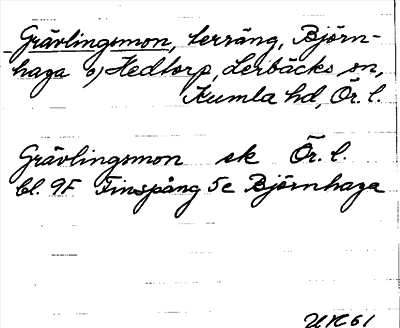 Grävlingsmon, terräng, Björn-
haga o, Hedtorp, Lerbäcks sn,
Kumla hd, Ör. l.
Grävlingsmon sk Ör. l.
bl. 9F Finspång 5e Björnhaga